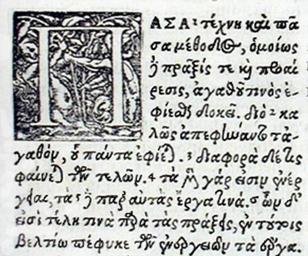 ΠΑΣΑ 1 τέχνη καὶ πᾶ
σα μέθοδος, ὁμοίως
ἡ πρᾶξίς τε κỳ προαί
ρεσις, ἀγαθοῦ τινὸς ἐ-
φίεσθαι δοκεῖ. διὸ 2 κα
λῶς ἀπεφήναντο τἀ-
γαθὸν, οὗ πάντα ἐφίεται. 3 διαφορὰ δέ τις
φαίνεται τῶν τελῶν. 4 τὰ μὲν γάρ εἰσιν ἐνέρ
γειαι, τὰ δὲ παρ' αὐτὰς ἔργα τινά. 5 ὧν δ'
εἰσὶ τέλη τινὰ παρὰ τὰς πράξεις, ἐν τούτοις
βελτίω πέφυκε τῶν ἐνεργειῶν τὰ ἔργα.